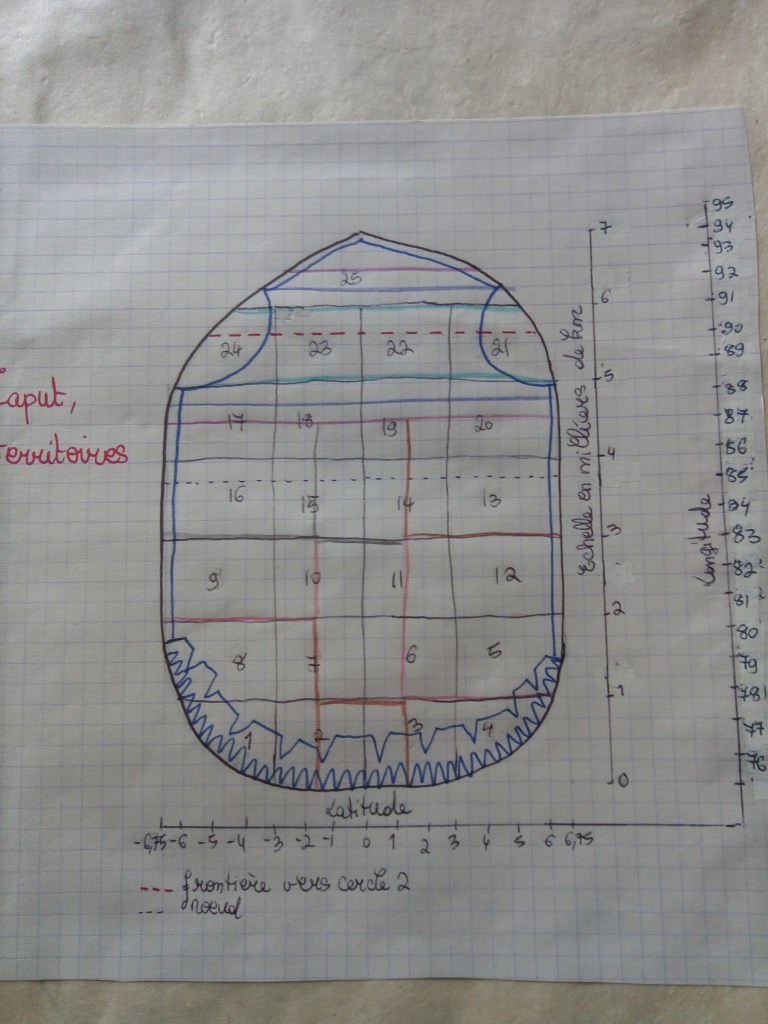 Caput,
Territoires
25
24 23 22 21
17 18 19 20
16 15 14 13
9 10 11 12
8 7 6 5
1 2 3 4
7
6
5
4
3
2
1
0
Echelle en milliers de km
95
94
93
92
91
90
89
88
87
86
85
84
83
82
81
80
79
78
77
76
Longitude
Latitude
-6,75 -6 -5 -4 -3 -2 -1 0 1 2 3 4 5 6 6,75
--- frontière vers cercle 2
--- noeud